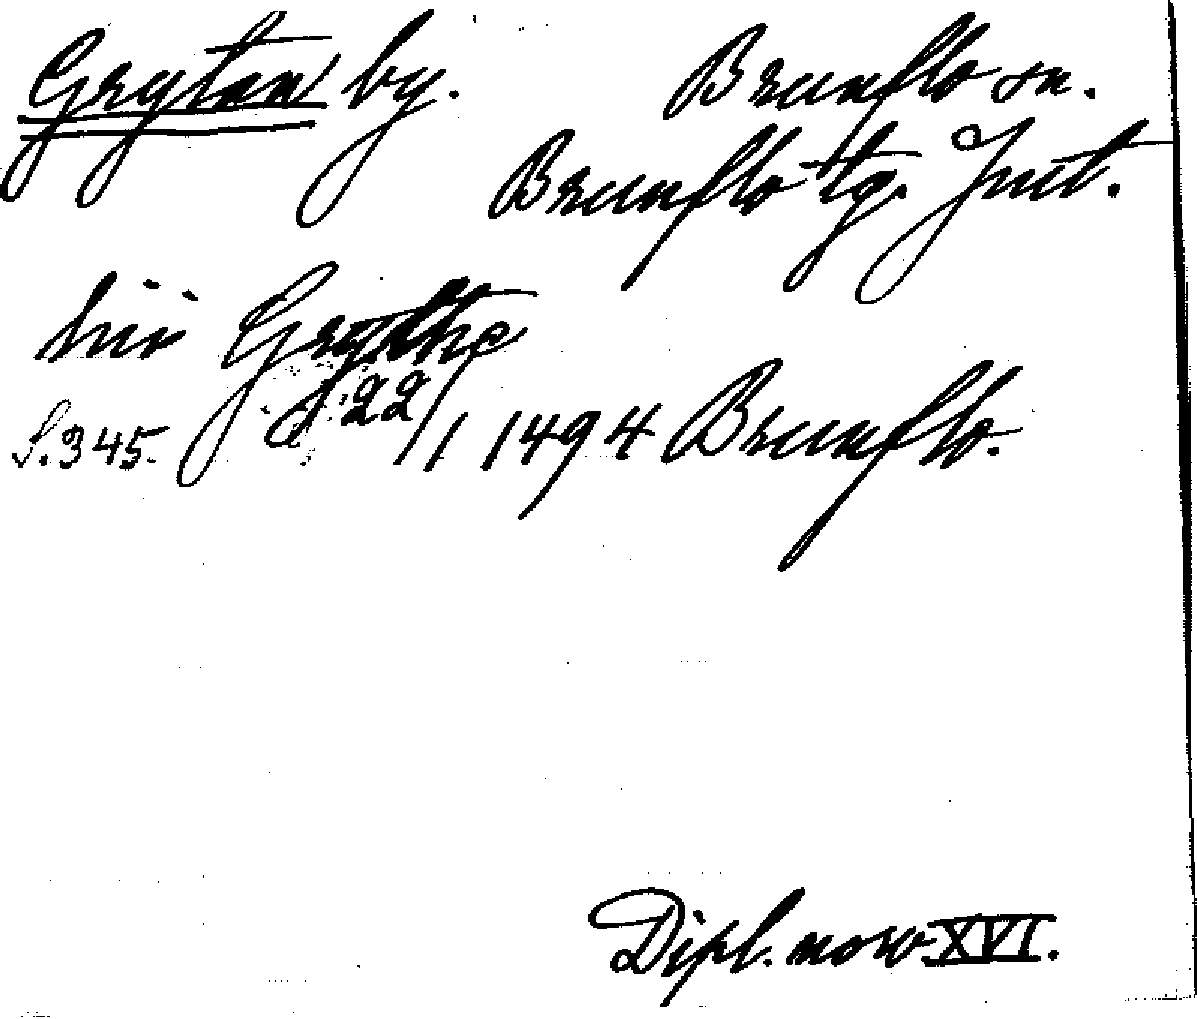 Grytan by. Brunflo sn.
Brunflo tg. Jmtl.
Grythe
S. 345. 22/1 1494 Brunflo.
Dipl. norv. XVI.